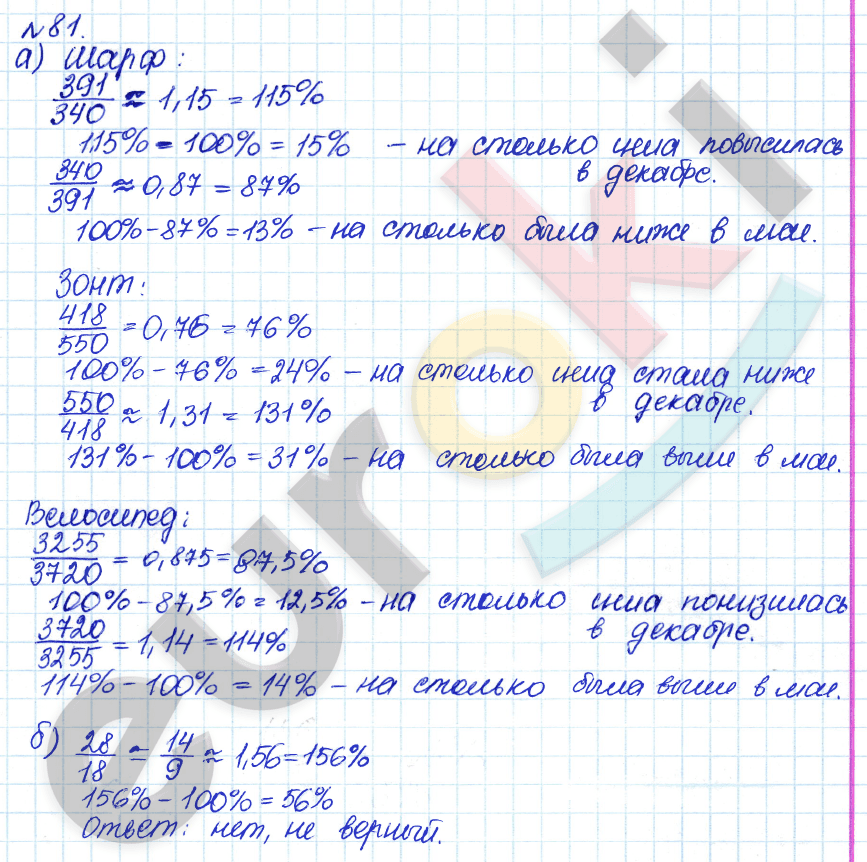 №81.
а) Шарф:
391/340 ≈ 1,15 = 115%
115% - 100% = 15% - на столько цена повысилась
в декабре.
340/391 ≈ 0,87 = 87%
100% - 87% = 13% - на столько была ниже в мае.
Зонт:
418/550 = 0,76 = 76%
100% - 76% = 24% - на столько цена стала ниже
в декабре.
550/418 ≈ 1,31 = 131%
131% - 100% = 31% - на столько была выше в мае.
Велосипед:
3255/3720 = 0,875 = 87,5%
100% - 87,5% = 12,5% - на столько цена понизилась
в декабре.
3720/3255 = 1,14 = 114%
114% - 100% = 14% - на столько была выше в мае.
б) 28/18 = 14/9 ≈ 1,56 = 156%
156% - 100% = 56%
Ответ: нет, не верный.
euroki